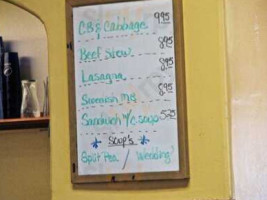 CB & Cabbage 9.95
Beef Stew 8.95
Lasagna 8.95
Swedish 8.95
Sandwich w/c soup 5.25
* Soup's *
Split Pea / Wedding